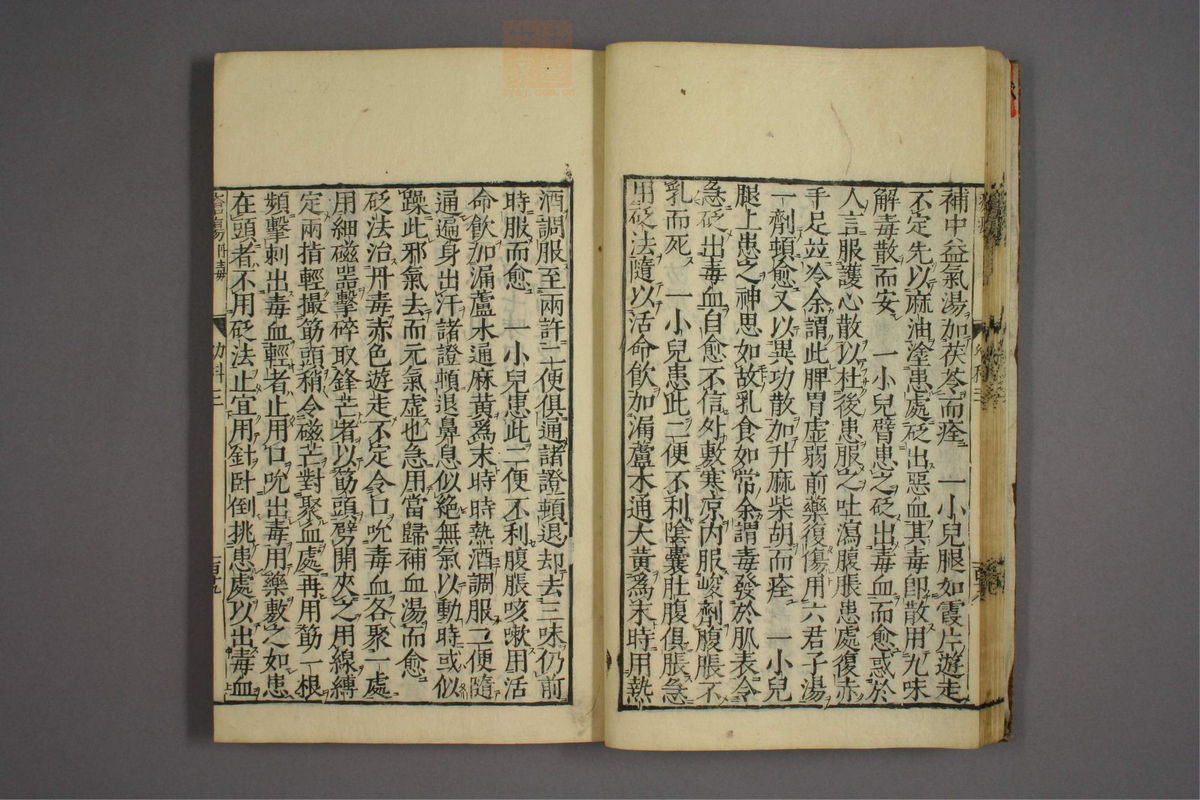 補中益氣湯加茯苓而痊　一小兒腿如霞片遊走
不定先以麻油塗患處砭出惡血其毒卽散用九味
解毒散而安　一小兒臂患之砭出毒血而愈或於
人言服護心散以杜後患服之吐瀉腹脹患處復赤
手足竝冷余謂此脾胃虛弱前藥復傷用六君子湯
一劑頓愈又以異功散加升麻柴胡而痊　一小兒
腿上患之神思如故乳食如常余謂毒發於肌表令
急砭出毒血自愈不信外敷寒凉內服峻劑腹脹不
乳而死　一小兒患此二便不利陰囊肚腹俱脹急
用砭法隨以活命飮加漏蘆木通大黃爲末時用熱
酒調服至兩許二便俱通諸證頓退却去三味仍前
時服而愈　一小兒患此二便不利腹脹咳嗽用活
命飮加漏蘆木通麻黃爲末時時熱酒調服二便隨
通遍身出汗諸證頓退鼻息似絕無氣以動時或似
躁此邪氣去而元氣虛也急用當歸補血湯而愈
砭法治丹毒赤色遊走不定令口吮毒血各聚一處
用細磁器擊碎取鋒芒者以筯頭劈開夾之用線縛
定兩指輕撮筯頭稍令磁芒對聚血處再用筯一根
頻擊刺出毒血輕者止用口吮出毒用藥敷之如患
在頭者不用砭法止宜用針卧倒挑患處以出毒血
瘡瘍　丹毒　幼科三